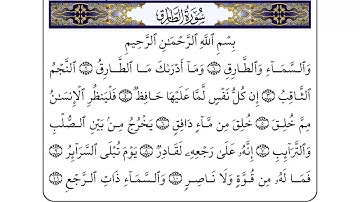 سُورَةُ الطَّارِقِ
بِسْمِ اللَّهِ الرَّحْمَٰنِ الرَّحِيمِ
وَالسَّمَاءِ وَالطَّارِقِ ۝ وَمَا أَدْرَىٰكَ مَا الطَّارِقُ ۝ النَّجْمُ
الثَّاقِبُ ۝ إِن كُلُّ نَفْسٍ لَّمَّا عَلَيْهَا حَافِظٌ ۝ فَلْيَنظُرِ الْإِنسَٰنُ
مِمَّ خُلِقَ ۝ خُلِقَ مِن مَّاءٍ دَافِقٍ ۝ يَخْرُجُ مِنۢ بَيْنِ الصُّلْبِ
وَالتَّرَائِبِ ۝ إِنَّهُ عَلَىٰ رَجْعِهِ لَقَادِرٌ ۝ يَوْمَ تُبْلَى السَّرَائِرُ ۝
فَمَا لَهُ مِن قُوَّةٍ وَلَا نَاصِرٍ ۝ وَالسَّمَاءِ ذَاتِ الرَّجْعِ ۝